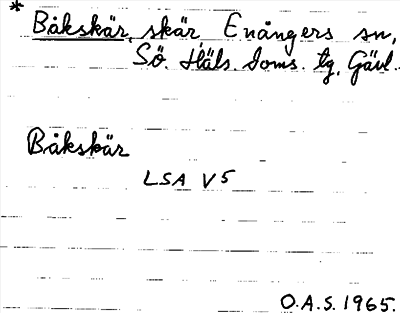 * Båkskär, skär Enångers sn,
Sö. Häls. doms. tg, Gävl.
Båkskär
LSA V5
O.A.S. 1965.